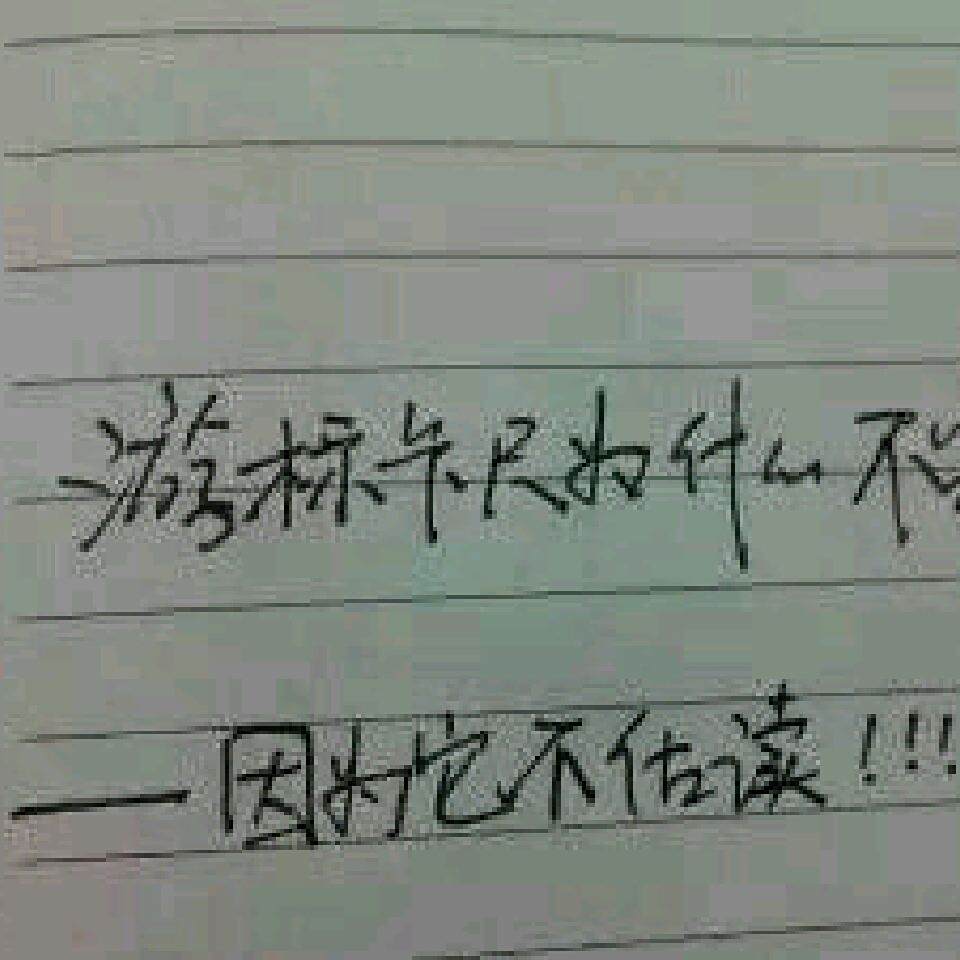 游标卡尺为什么不
——因为它不估读!!!